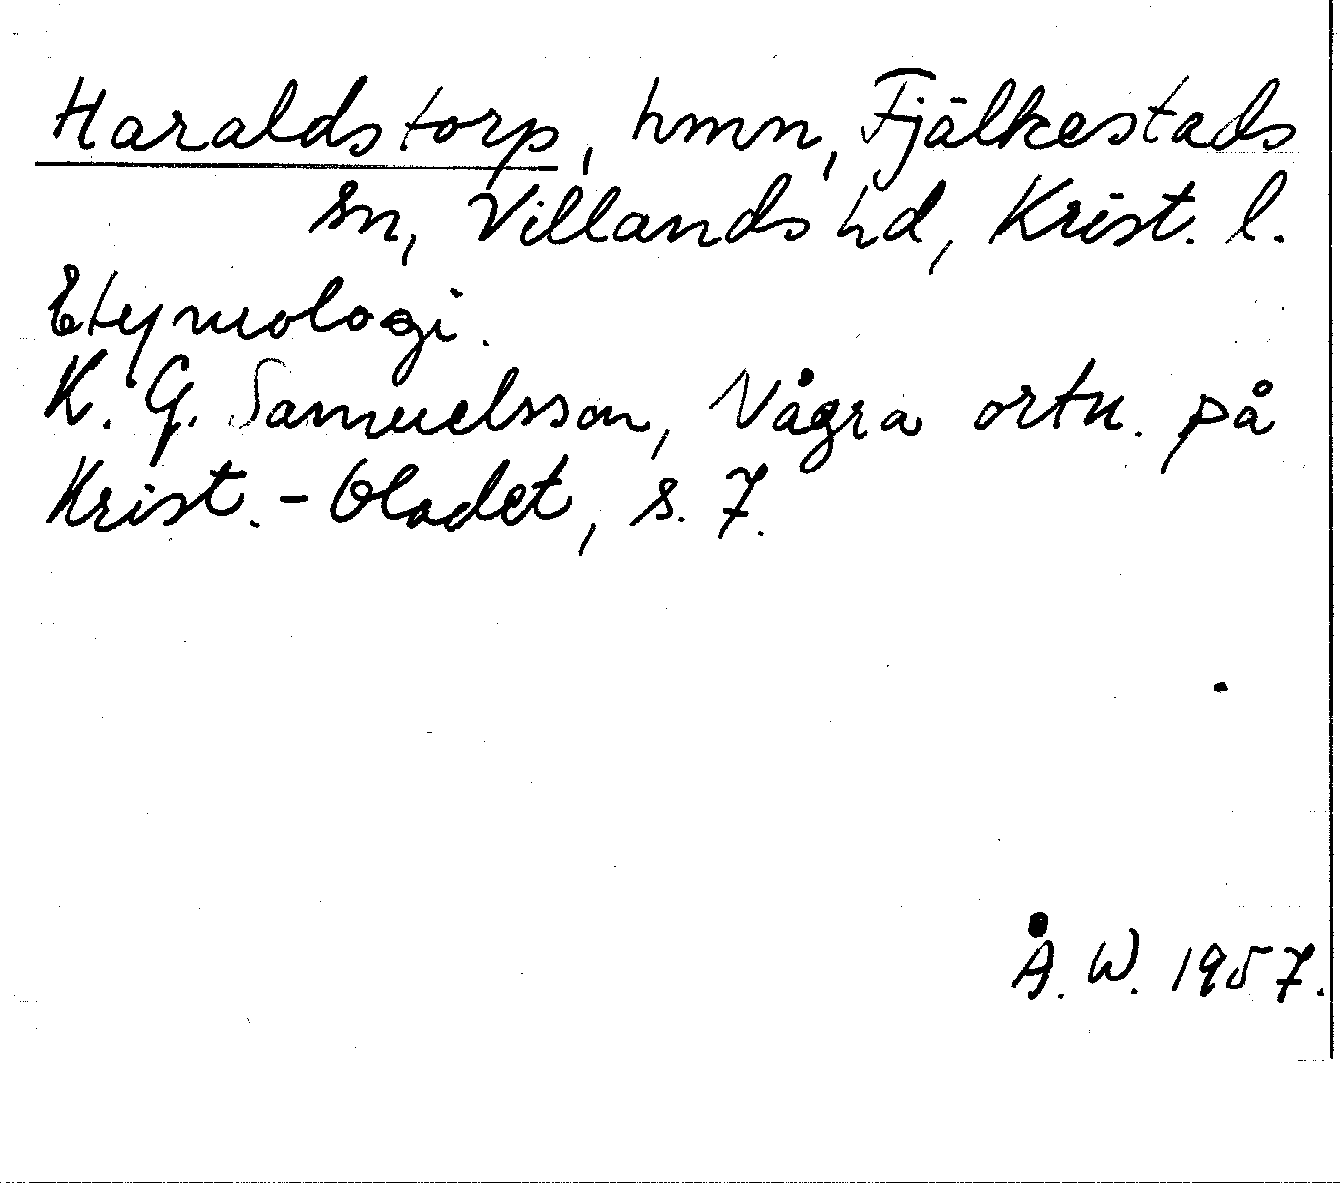 Haraldstorp, hmn, Fjälkestads
sn, Villands hd, Krist. l.
Etymologi.
K. G. Samuelsson, Några ortn. på
Krist.-bladet, s. 7.
Å. W. 1957.